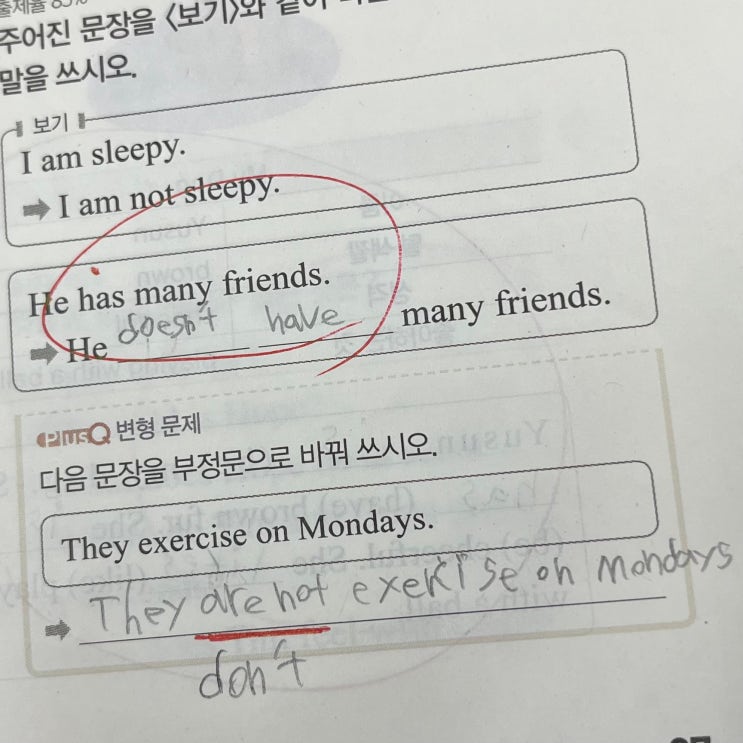 출제율 85%
주어진 문장을 <보기>와 같이
말을 쓰시오.
보기
I am sleepy.
➡ I am not sleepy.
He has many friends.
➡ He doesn't have many friends.
PLUS Q 변형 문제
다음 문장을 부정문으로 바꿔 쓰시오.
They exercise on Mondays.
➡ They are not exercise on Mondays
don't